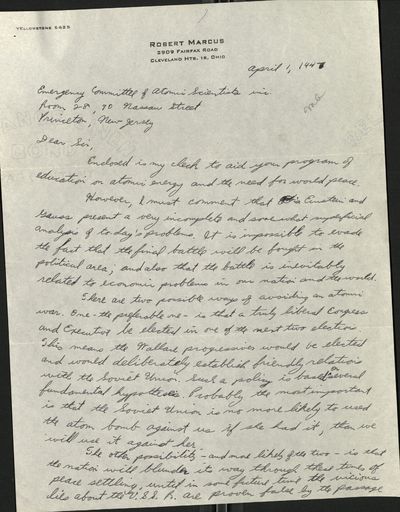 YELLOWSTONE 5425
ROBERT MARCUS
2909 FAIRFAX ROAD
CLEVELAND HTS. 18, OHIO
April 1, 1947
Emergency Committee of Atomic Scientists inc.
Room 28, 90 Nassau Street
Princeton, New Jersey
Dear Sir,
Enclosed is my check to aid your program of
education on atomic energy and the need for world peace.
However, I must comment that Einstein and
present a very incomplete and somewhat superficial
analysis of today's problems. It is impossible to evade
the fact that the final battle will be fought in the
political area, and also that the battle is inevitably
related to economic problems in our nation and the world.
There are two possible ways of avoiding an atomic
war. One - the preferable one - is that a truly liberal Congress
and Executive be elected in one of the next two elections.
This means the Wallace progressives would be elected
and would deliberately establish friendly relations
with the Soviet Union. Such a policy is based on several
fundamental hypotheses. Probably the most important
is that the Soviet Union is no more likely to used
the atom bomb against us if she had it, than we
will use it against her.
The other possibility - and more likely of the two - is that
the nation will blunder its way through these times of
peace settling, until in some future time the vicious
lies about the U.S.S.R. are proven false by the passage